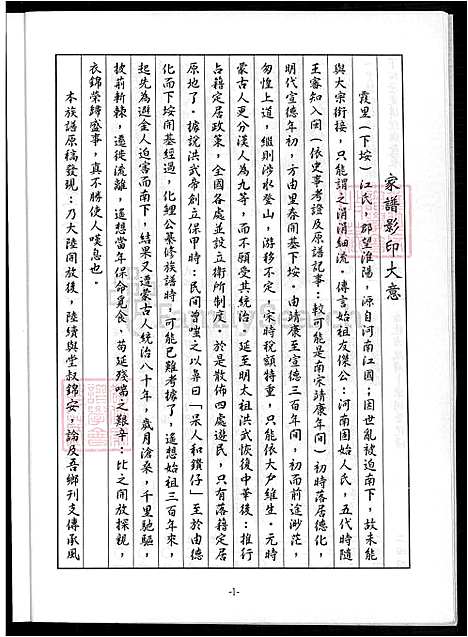 家譜影印大意
霞里(下垵)江氏,郡望淮陽,源自河南江國;因世亂被迫南下,故未能
與大宗銜接,只能謂之涓涓細流。傳言始祖友傑公:河南固始人氏,五代時隨
王審知入閩(依史事考證及原譜記事:較可能是南宋靖康年間)初時落居德化,
明代宣德年初,方由里春開基下垵。由靖康至宣德三百年間,初而前途渺茫,
匆惶上道,繼則涉水登山,游移不定,宋時稅額特重,只能依大戶維生。元時
蒙古人更分漢人為九等,而不願受其統治。延至明太祖洪武恢後中華後:推行
占籍定居政策,全國各處並設立衛所制度。於是散佈四處遊民,只有落籍定居
原地了。據說洪武帝創立保甲時:民間曾嗤之以鼻曰「呆人和鑽仔」至於由德
化而下垵開基經過,化鯉公纂修族譜時,可能已難考據了,遥想始祖三百年來,
起先為避金人迫害而南下,結果又遭蒙古人統治八十年,歲月滄桑,千里馳驅,
披荊斬棘,遷徙流離,遥想當年保命覓食、苟延殘喘之艱辛:比之開放探視,
衣錦榮歸盛事,真不勝使人嘆息也。
本族譜原稿發現:乃大陸開放後,陸續與堂叔錦安,論及吾鄉刊支傳承風
-1-